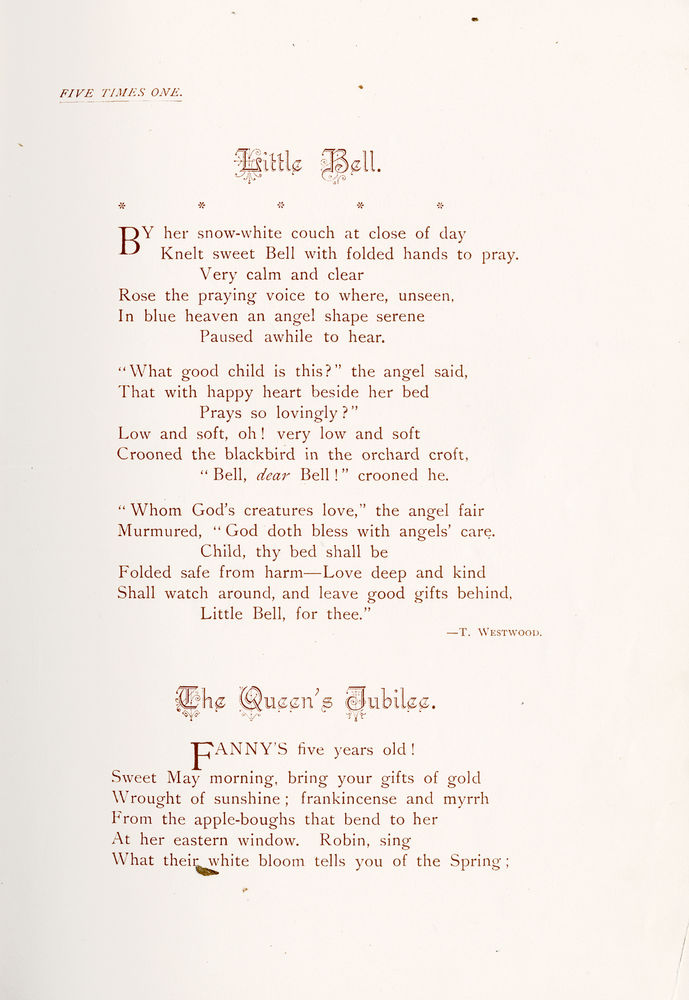 FIVE TIMES ONE.
Little Bell.
* * * * *
BY her snow-white couch at close of day
Knelt sweet Bell with folded hands to pray.
Very calm and clear
Rose the praying voice to where, unseen,
In blue heaven an angel shape serene
Paused awhile to hear.
"What good child is this?" the angel said,
That with happy heart beside her bed
Prays so lovingly?"
Low and soft, oh! very low and soft
Crooned the blackbird in the orchard croft,
"Bell, dear Bell!" crooned he.
"Whom God's creatures love," the angel fair
Murmured, "God doth bless with angels' care.
Child, thy bed shall be
Folded safe from harm—Love deep and kind
Shall watch around, and leave good gifts behind,
Little Bell, for thee."
—T. WESTWOOD.
The Queen's Jubilee.
FANNY'S five years old!
Sweet May morning, bring your gifts of gold
Wrought of sunshine; frankincense and myrrh
From the apple-boughs that bend to her
At her eastern window. Robin, sing
What their white bloom tells you of the Spring;